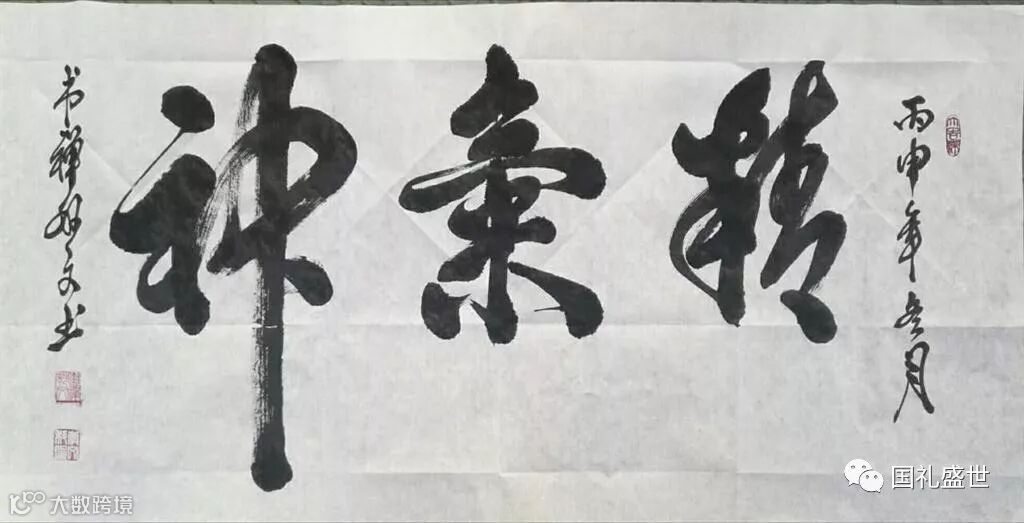 丙申年冬月
精氣神
书禅文书
国礼盛世
大数跨境